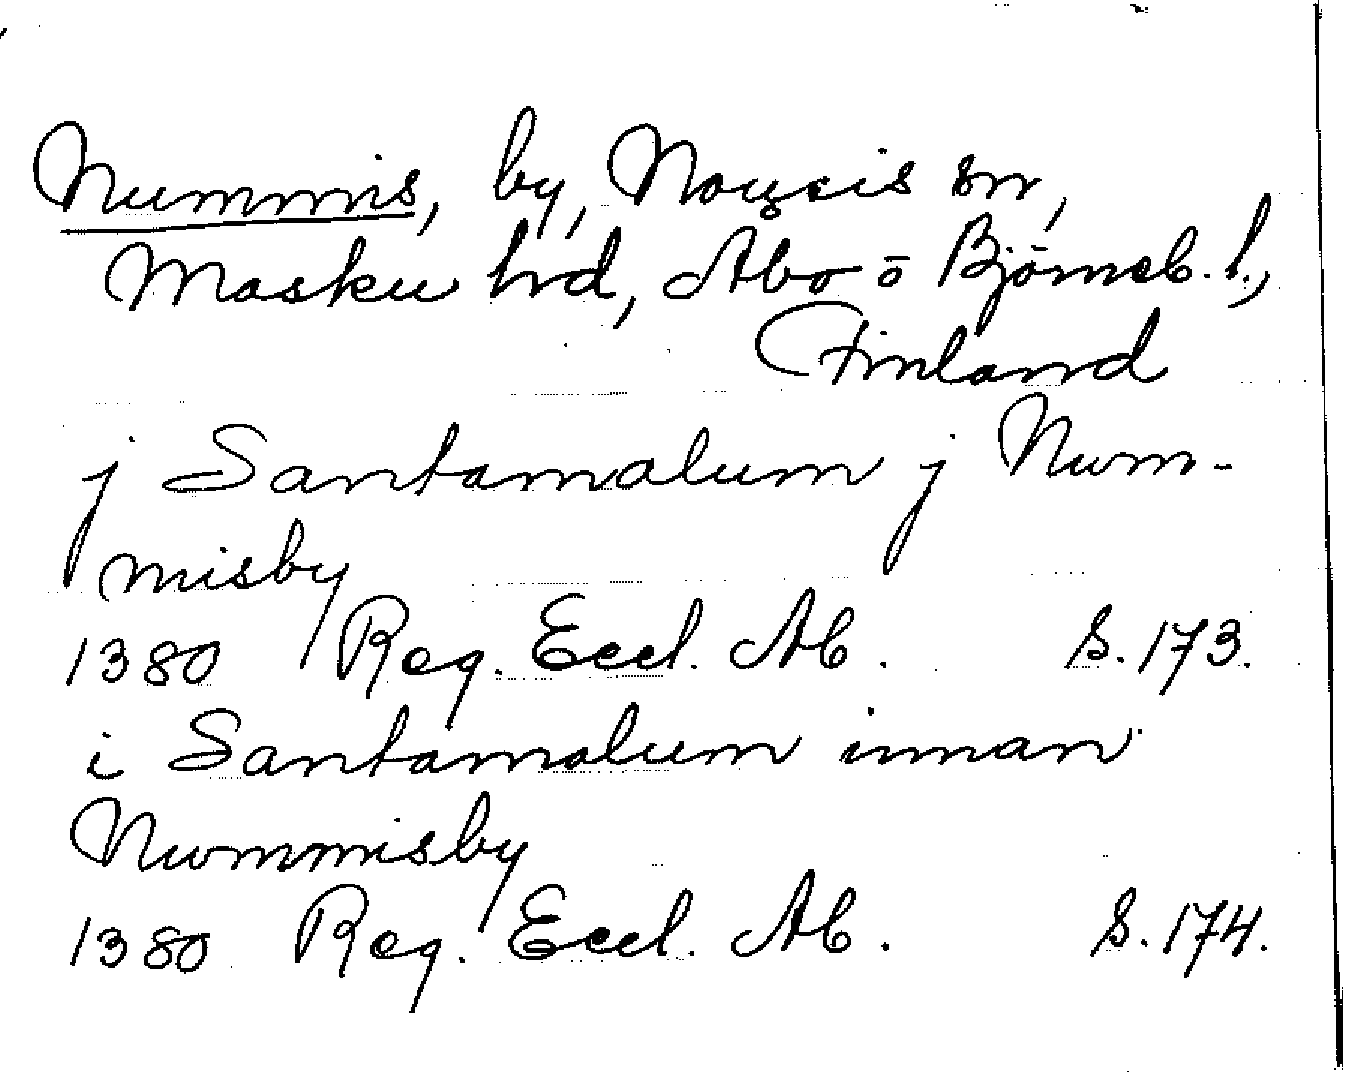 Nummis, by, Nousis sn,
Masku hrd, Åbo o Björneb. l.,
Finland
j Santamalum j Num-
misby
1380 Reg. Eccl. Ab. S. 173.
i Santamalum innan
Nummisby
1380 Reg. Eccl. Ab. S. 174.